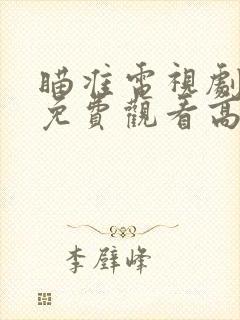 瞄准電視劇
免費觀看高
李壁峰